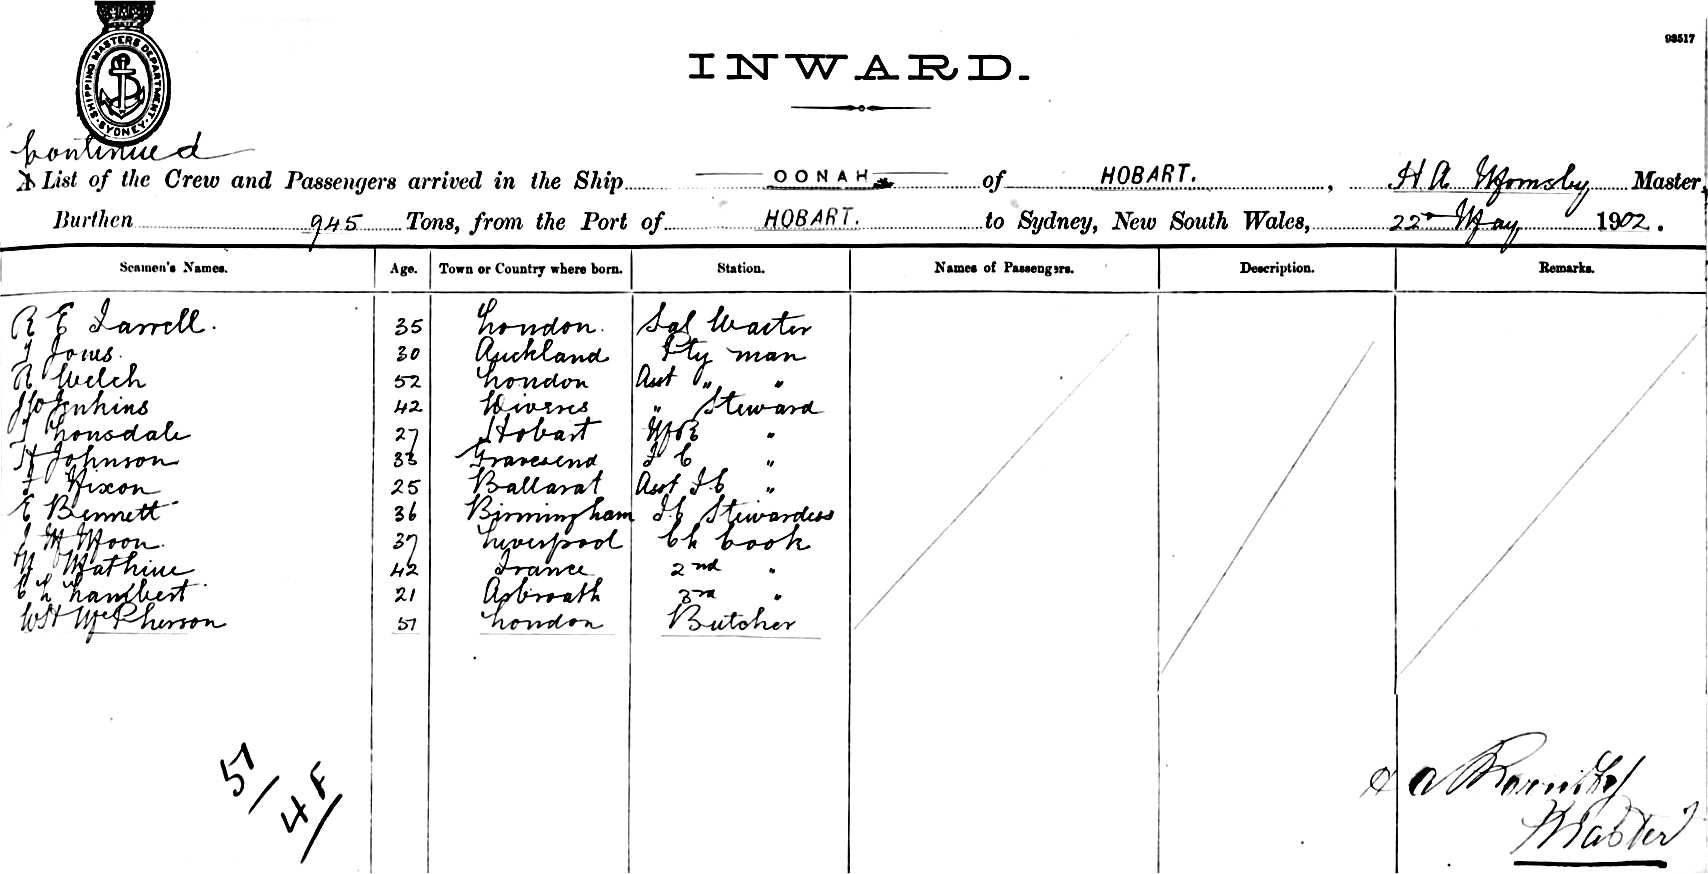 SHIPPING MASTERS DEPARTMENT. SYDNEY.
93517
INWARD.
Continued
A List of the Crew and Passengers arrived in the Ship OONAH of HOBART. , H A Mornsby Master,
Burthen 945 Tons, from the Port of HOBART. to Sydney, New South Wales, 22nd May 1902.
Seamen's Names. Age. Town or Country where born. Station. Names of Passengers. Description. Remarks.
R E Farrell. 35 London. Sal Waiter
Jones. 30 Auckland Pty man
R Welch 52 London Asst " "
Jenkins 42 " Steward
Lonsdale 27 Hobart "
H Johnson 33 Gravesend F C "
F Nixon 25 Ballarat Asst F C "
E Bennett 36 Birmingham F.C Stewardess
J M Moon. 37 Liverpool Ch Cook
Mathine 42 France 2nd "
C L Lambert 21 Arbroath 3rd "
WH McPherson 51 London Butcher
51
4 F
H A
Master